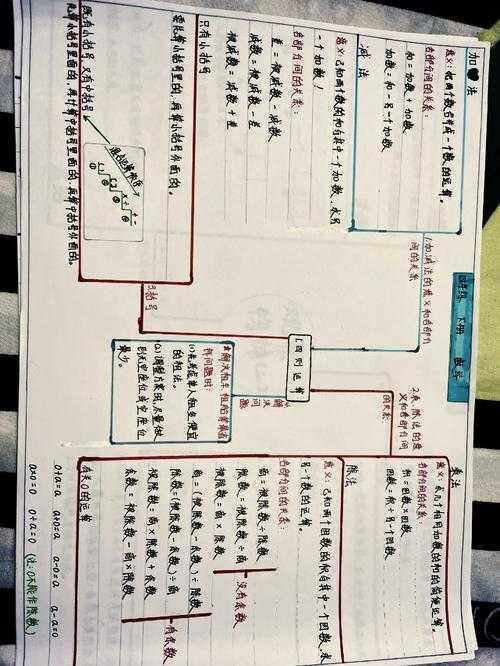 四年级 下册 数学
1.四则运算
1.加、减法的意义和各部分
间的关系
加法
意义:把两个数合并成一个数的运算。
各部分间的关系:
和=加数+加数
加数=和-另一个加数
减法
意义:已知两个数的和与其中一个加数,求另
一个加数!
各部分间的关系:
差=被减数-减数
减数=被减数-差
被减数=减数+差
2.乘、除法的意
义和各部分间
的关系
乘法
意义:求几个相同加数的和的简便运算。
各部分间的关系:
积=因数×因数
因数=积÷另一个因数
除法
意义:已知两个因数的积与其中一个因数,求
另一个因数的运算。
各部分间的关系:
商=被除数÷除数
除数=被除数÷商
被除数=商×除数
没有余数
商=(被除数-余数)÷除数
除数=(被除数-余数)÷商
被除数=商×除数+余数
余数=被除数-商×除数
有余数
有关0的运算
0+a=a a+0=a a-0=a a-a=0
a×0=0 0÷a=0 (注:0不能作除数)
3.括号
只有小括号
要先算小括号里面的,再算小括号外面的。
既有小括号,又有中括号
先算小括号里面的,再算中括号里面的,再算中括号外面的。
混合运算顺序
( )
[ ]
×÷
+-
① ② ③ ④
解决
问题
(2)调整方案时,尽量做
到无空座位或空座位
最少。